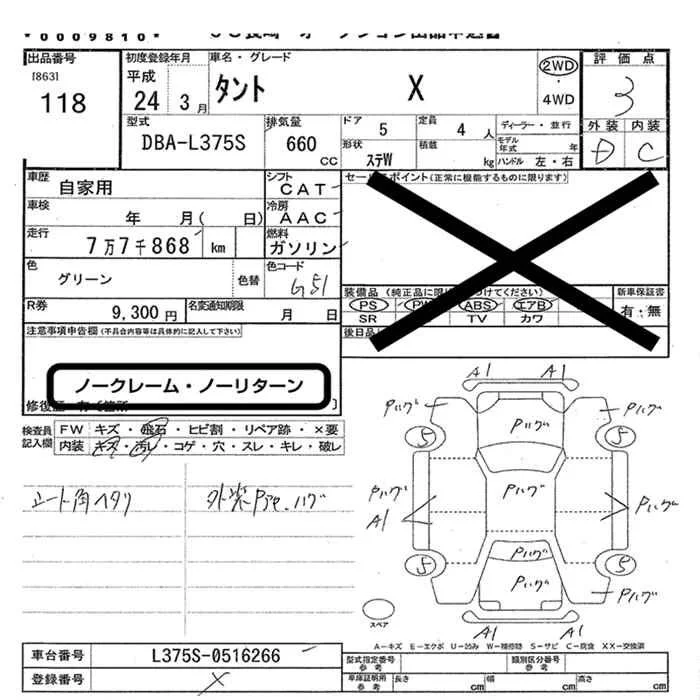 *0009810*
出品番号
[863]
118
初度登録年月
平成
24 3月
車名・グレード
タント X
2WD
・
4WD
評価点
3
外装 内装
D C
型式
DBA-L375S
排気量
660
cc
ドア
5
定員
4 人
ディーラー・並行
形状
ステW
積載
kg
モデル年式
年
ハンドル 左・右
車歴
自家用
シフト
CAT
セールスポイント(正常に機能するものに限ります)
車検
年 月( 日)
冷房
AAC
走行
7万7千868 km
燃料
ガソリン
色
グリーン
色替
色コード
G51
装備品
PS ABS エアB
SR TV カワ
新車保証書
有・無
R券
9,300円
名変通知期限
月 日
後日品
注意事項申告欄(不具合内容等は具体的に記入して下さい)
ノークレーム・ノーリターン
検査員記入欄
FW キズ・飛石・ヒビ割・リペア跡・×要
内装 キズ・汚レ・コゲ・穴・スレ・キレ・破レ
A1 A1
Pハゲ Pハゲ Pハゲ
5 5
Pハゲ Pハゲ Pハゲ
A1
Pハゲ
5 5
Pハゲ Pハゲ
A1 A1
スペア
A-キズ E-エクボ U-凹み W-補修跡 S-サビ C-腐食 XX-交換済
車台番号
L375S-0516266
登録番号
×
型式指定番号
参考
類別区分番号
参考
車庫証明用
参考
長さ cm
幅 cm
高さ cm